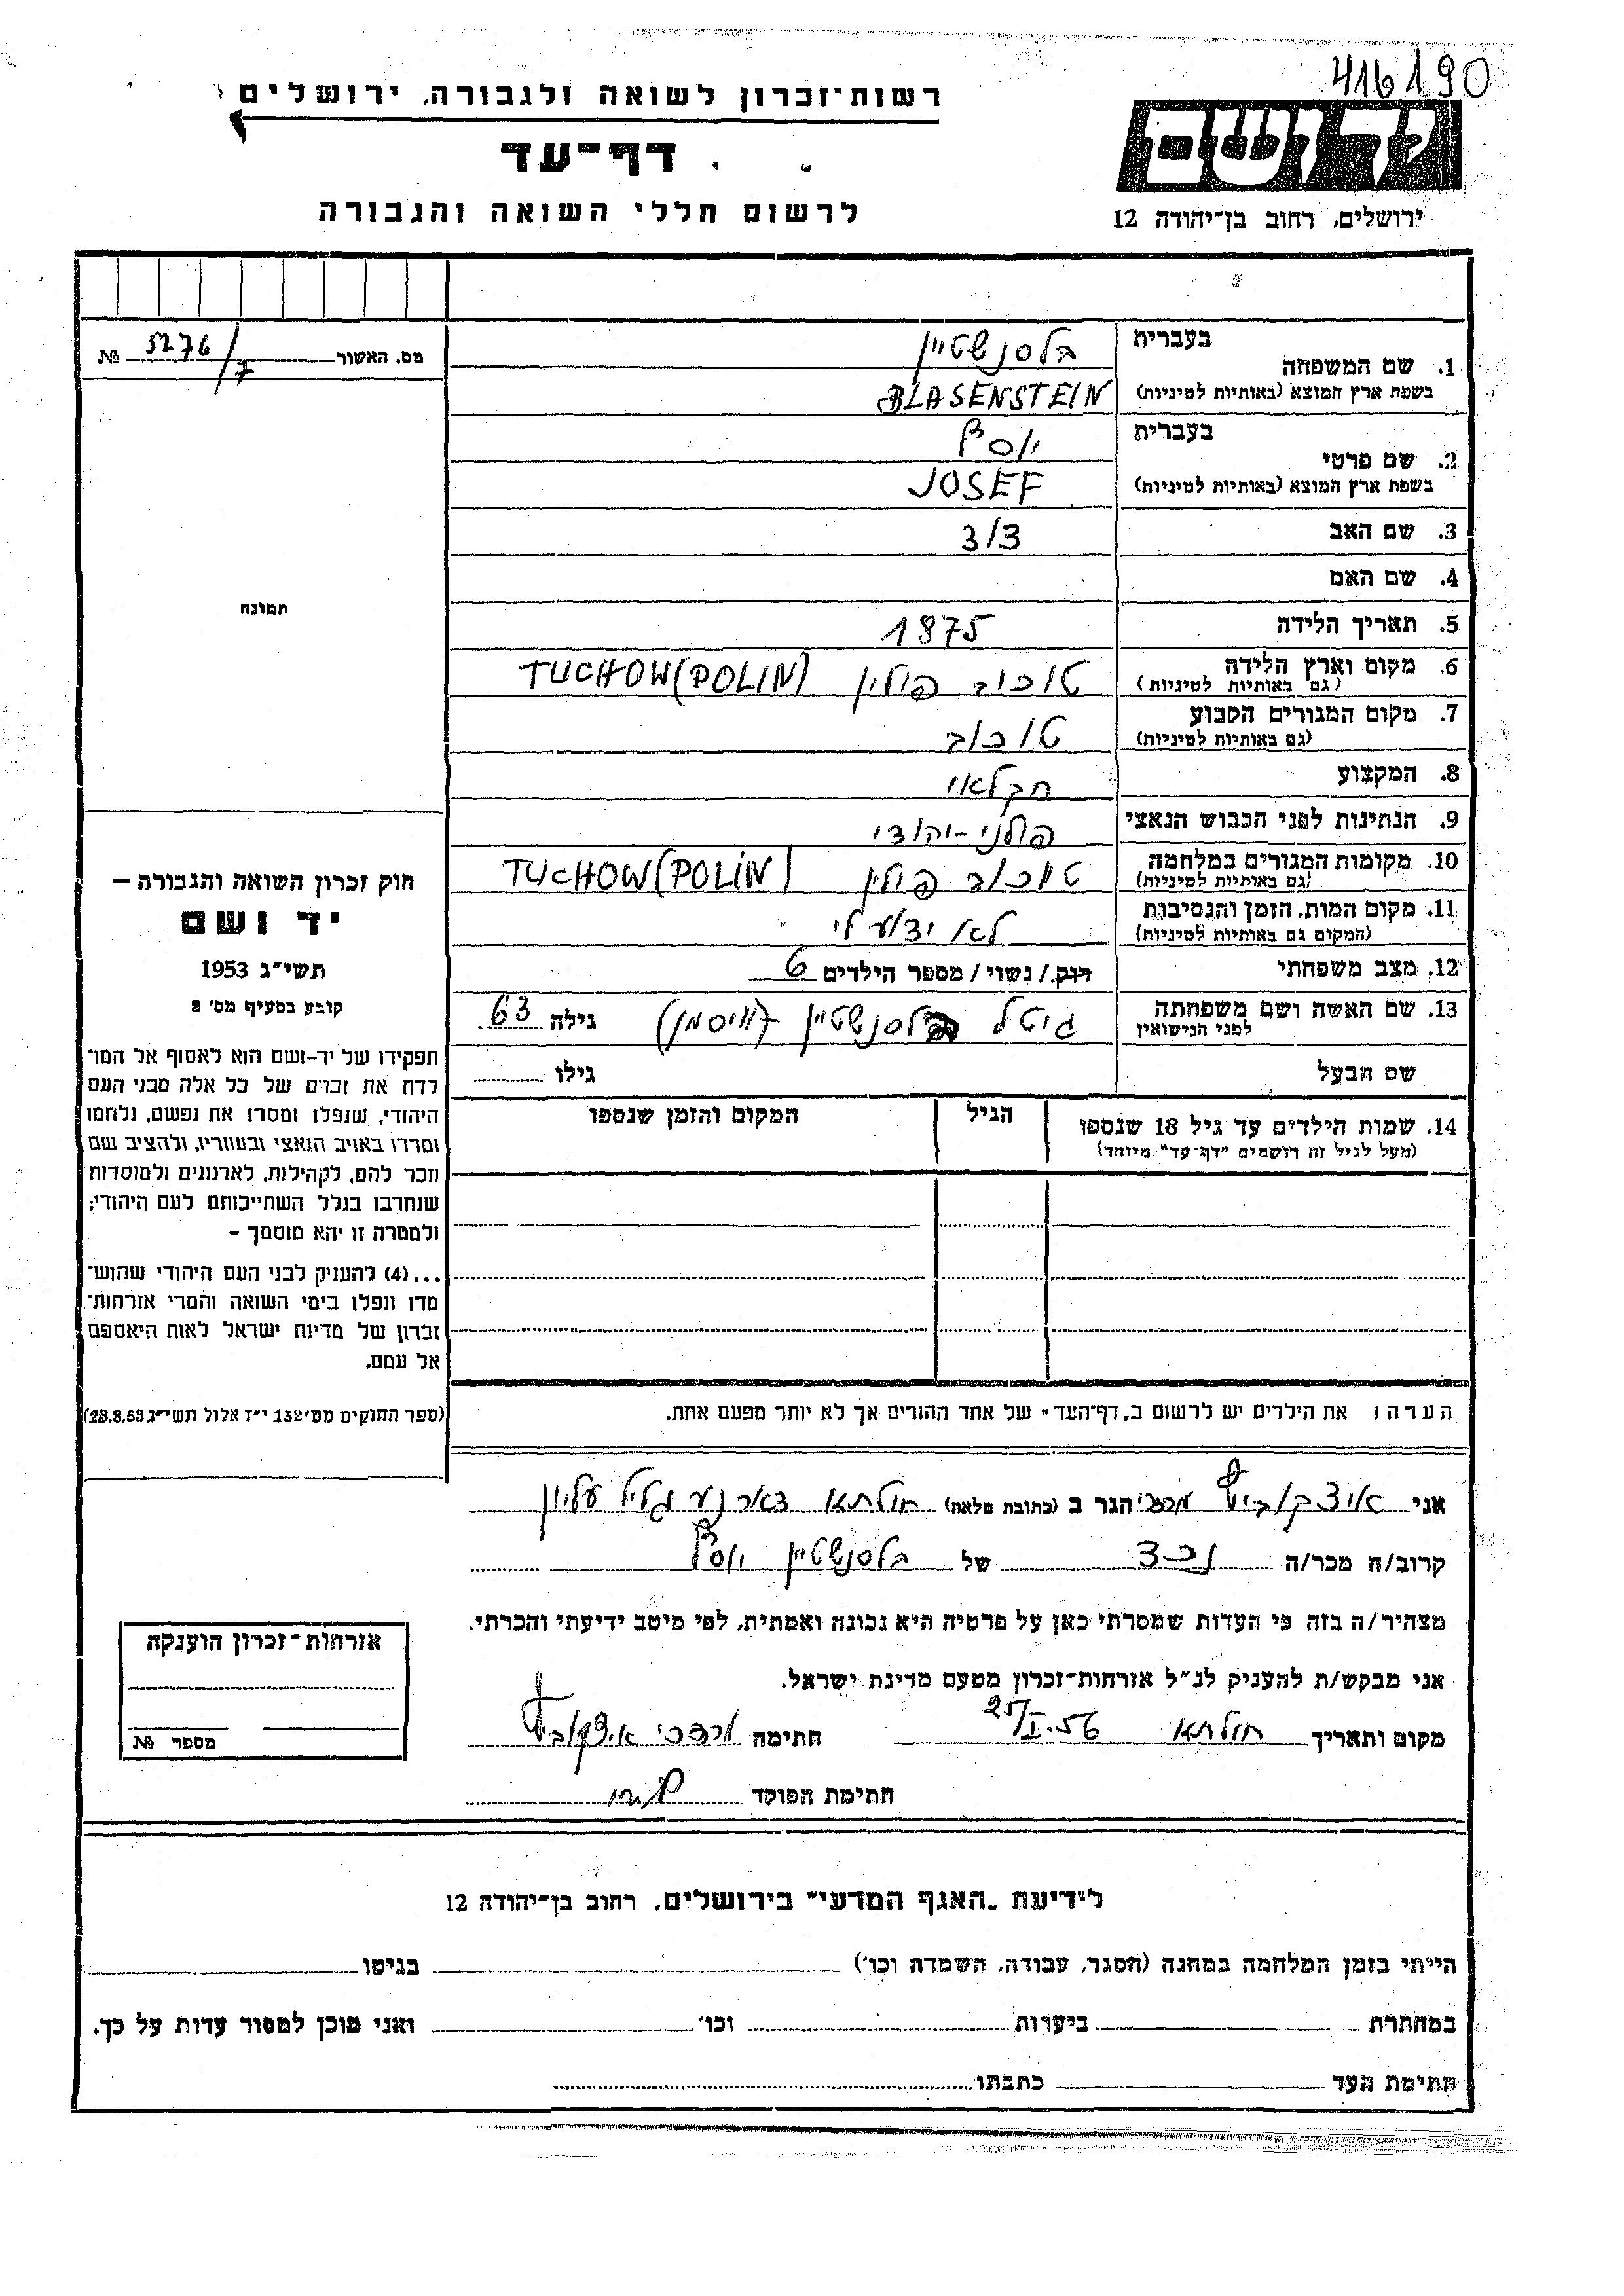 416190
רשות־זכרון לשואה ולגבורה, ירושלים
דף־עד
לרשום חללי השואה והגבורה
יד ושם
ירושלים, רחוב בן־יהודה 12
מס. האשור 5276/7 №
תמונה
חוק זכרון השואה והגבורה –
יד ושם
תשי"ג 1953
קובע בסעיף מס' 2
תפקידו של יד-ושם הוא לאסוף אל המו־
לדת את זכרם של כל אלה מבני העם
היהודי, שנפלו ומסרו את נפשם, נלחמו
ומרדו באויב הנאצי ובעוזריו, ולהציב שם
וזכר להם, לקהילות, לארגונים ולמוסדות
שנחרבו בגלל השתייכותם לעם היהודי;
ולמטרה זו יהא מוסמך –
...(4) להעניק לבני העם היהודי שהוש־
מדו ונפלו בימי השואה והמרי אזרחות־
זכרון של מדינת ישראל לאות היאספם
אל עמם.
(ספר החוקים מס' 132 י"ז אלול תשי"ג 28.8.53)
1. שם המשפחה בעברית בלסנשטיין
בשפת ארץ המוצא (באותיות לטיניות) BLASENSTEIN
2. שם פרטי בעברית יוסף
בשפת ארץ המוצא (באותיות לטיניות) JOSEF
3. שם האב דוד
4. שם האם
5. תאריך הלידה 1875
6. מקום וארץ הלידה (גם באותיות לטיניות) טוכוב פולין TUCHOW (POLIN)
7. מקום המגורים הקבוע (גם באותיות לטיניות) טוכוב
8. המקצוע חקלאי
9. הנתינות לפני הכבוש הנאצי פולני-יהודי
10. מקומות המגורים במלחמה (גם באותיות לטיניות) טוכוב פולין TUCHOW (POLIN)
11. מקום המות, הזמן והנסיבות (המקום גם באותיות לטיניות) לא ידוע לי
12. מצב משפחתי רווק / נשוי / מספר הילדים 6
13. שם האשה ושם משפחתה לפני הנישואין גיטל בלסנשטיין (וויסמן) גילה 63
שם הבעל גילו
14. שמות הילדים עד גיל 18 שנספו הגיל המקום והזמן שנספו
(מעל לגיל זה רושמים "דף־עד" מיוחד)
הערה: את הילדים יש לרשום ב"דף־העד" של אחד ההורים אך לא יותר מפעם אחת.
אני איצקוביץ מרדכי הגר ב (כתובת מלאה) חולתא דאר נע גליל עליון
קרוב/ה מכר/ה נכד של בלסנשטיין יוסף
מצהיר/ה בזה כי העדות שמסרתי כאן על פרטיה היא נכונה ואמתית, לפי מיטב ידיעתי והכרתי.
אני מבקש/ת להעניק לנ"ל אזרחות־זכרון מטעם מדינת ישראל.
מקום ותאריך חולתא 25/I.56 חתימה מרדכי איצקוביץ
חתימת הפוקד
אזרחות־זכרון הוענקה
מספר №
לידיעת "האגף המדעי" בירושלים, רחוב בן־יהודה 12
הייתי בזמן המלחמה במחנה (הסגר, עבודה, השמדה וכו') בגיטו
במחתרת ביערות וכו' ואני מוכן למסור עדות על כך.
חתימת העד כתבתו